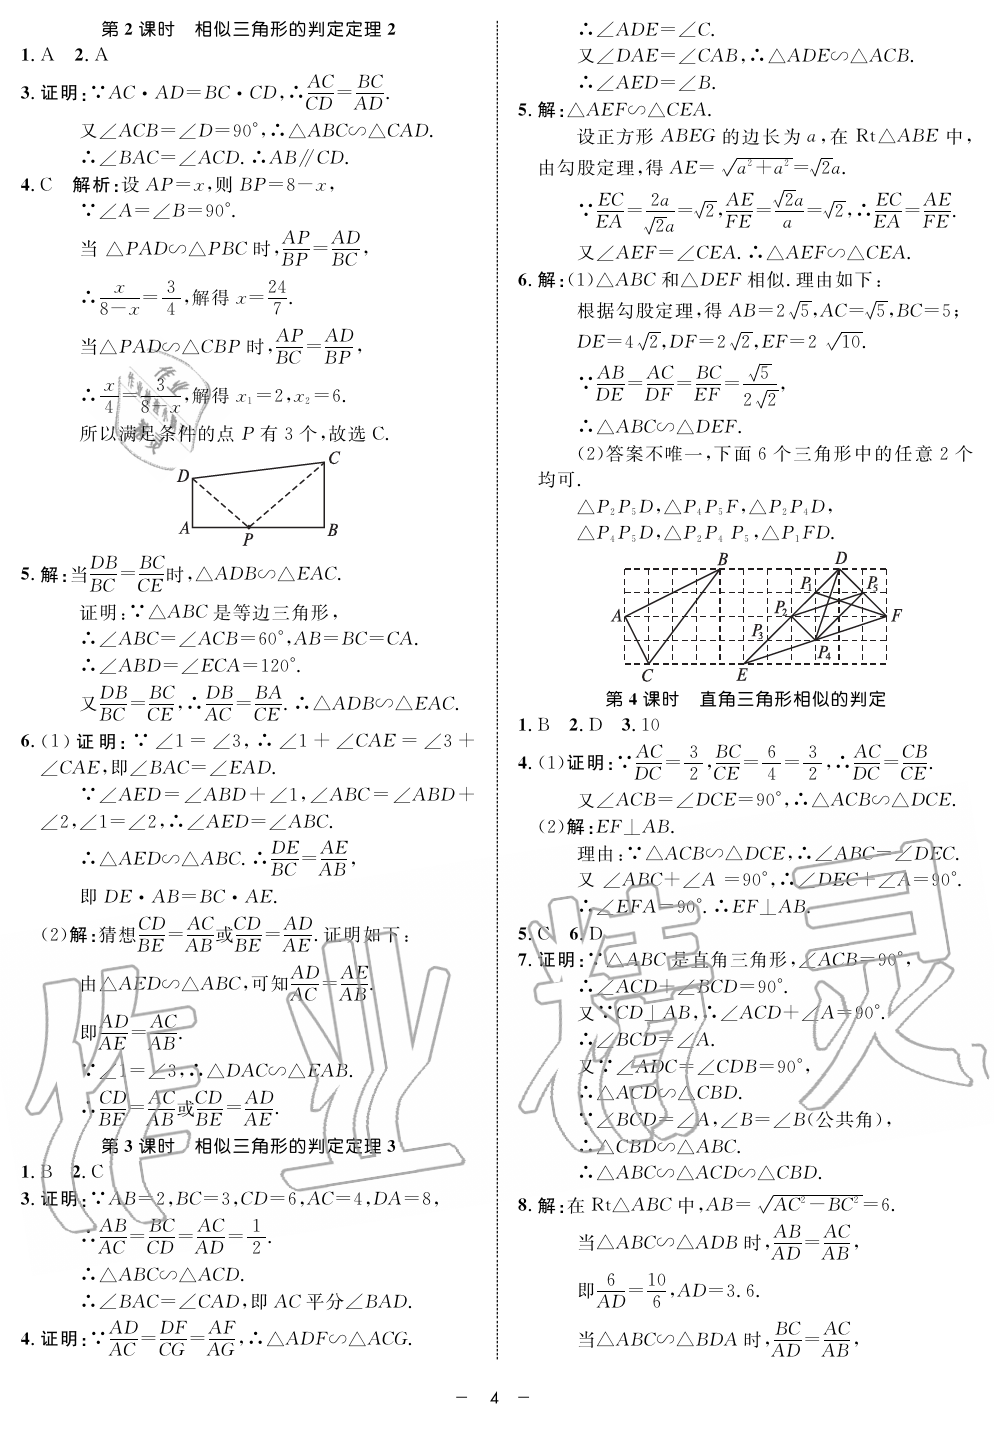 第2课时　相似三角形的判定定理2
1. A　2. A
3. 证明:∵AC·AD=BC·CD,∴AC/CD=BC/AD.
又∠ACB=∠D=90°,∴△ABC∽△CAD.
∴∠BAC=∠ACD.∴AB∥CD.
4. C　解析:设 AP=x,则 BP=8-x,
∵∠A=∠B=90°.
当 △PAD∽△PBC 时,AP/BP=AD/BC,
∴x/(8-x)=3/4,解得 x=24/7.
当△PAD∽△CBP 时,AP/BC=AD/BP,
∴x/4=3/(8-x),解得 x₁=2,x₂=6.
所以满足条件的点 P 有 3 个,故选 C.
D
C
A
P
B
5. 解:当DB/BC=BC/CE时,△ADB∽△EAC.
证明:∵△ABC 是等边三角形,
∴∠ABC=∠ACB=60°,AB=BC=CA.
∴∠ABD=∠ECA=120°.
又DB/BC=BC/CE,∴DB/AC=BA/CE.∴△ADB∽△EAC.
6. (1)证明:∵∠1=∠3,∴∠1+∠CAE=∠3+
∠CAE,即∠BAC=∠EAD.
∵∠AED=∠ABD+∠1,∠ABC=∠ABD+
∠2,∠1=∠2,∴∠AED=∠ABC.
∴△AED∽△ABC.∴DE/BC=AE/AB,
即 DE·AB=BC·AE.
(2)解:猜想CD/BE=AC/AB或CD/BE=AD/AE.证明如下:
由△AED∽△ABC,可知AD/AC=AE/AB.
即AD/AE=AC/AB.
∵∠1=∠3,∴△DAC∽△EAB.
∴CD/BE=AC/AB或CD/BE=AD/AE.
第3课时　相似三角形的判定定理3
1. B　2. C
3. 证明:∵AB=2,BC=3,CD=6,AC=4,DA=8,
∴AB/AC=BC/CD=AC/AD=1/2.
∴△ABC∽△ACD.
∴∠BAC=∠CAD,即 AC 平分∠BAD.
4. 证明:∵AD/AC=DF/CG=AF/AG,∴△ADF∽△ACG.
∴∠ADE=∠C.
又∠DAE=∠CAB,∴△ADE∽△ACB.
∴∠AED=∠B.
5. 解:△AEF∽△CEA.
设正方形 ABEG 的边长为 a,在 Rt△ABE 中,
由勾股定理,得 AE=√(a²+a²)=√2a.
∵EC/EA=2a/√2a=√2,AE/FE=√2a/a=√2,∴EC/EA=AE/FE.
又∠AEF=∠CEA.∴△AEF∽△CEA.
6. 解:(1)△ABC 和△DEF 相似.理由如下:
根据勾股定理,得 AB=2√5,AC=√5,BC=5;
DE=4√2,DF=2√2,EF=2√10.
∵AB/DE=AC/DF=BC/EF=√5/2√2,
∴△ABC∽△DEF.
(2)答案不唯一,下面 6 个三角形中的任意 2 个
均可.
△P₂P₅D,△P₄P₅F,△P₂P₄D,
△P₄P₅D,△P₂P₄ P₅,△P₁FD.
B
D
P₁
P₅
A
P₂
F
P₃
P₄
C
E
第4课时　直角三角形相似的判定
1. B　2. D　3. 10
4. (1)证明:∵AC/DC=3/2,BC/CE=6/4=3/2,∴AC/DC=CB/CE.
又∠ACB=∠DCE=90°,∴△ACB∽△DCE.
(2)解:EF⊥AB.
理由:∵△ACB∽△DCE,∴∠ABC=∠DEC.
又 ∠ABC+∠A=90°,∴∠DEC+∠A=90°.
∴∠EFA=90°.∴EF⊥AB.
5. C　6. D
7. 证明:∵△ABC 是直角三角形,∠ACB=90°,
∴∠ACD+∠BCD=90°.
又∵CD⊥AB,∴∠ACD+∠A=90°.
∴∠BCD=∠A.
又∵∠ADC=∠CDB=90°,
∴△ACD∽△CBD.
∵∠BCD=∠A,∠B=∠B(公共角),
∴△CBD∽△ABC.
∴△ABC∽△ACD∽△CBD.
8. 解:在 Rt△ABC 中,AB=√(AC²-BC²)=6.
当△ABC∽△ADB 时,AB/AD=AC/AB,
即6/AD=10/6,AD=3.6.
当△ABC∽△BDA 时,BC/AD=AC/AB,
— 4 —
作业精灵